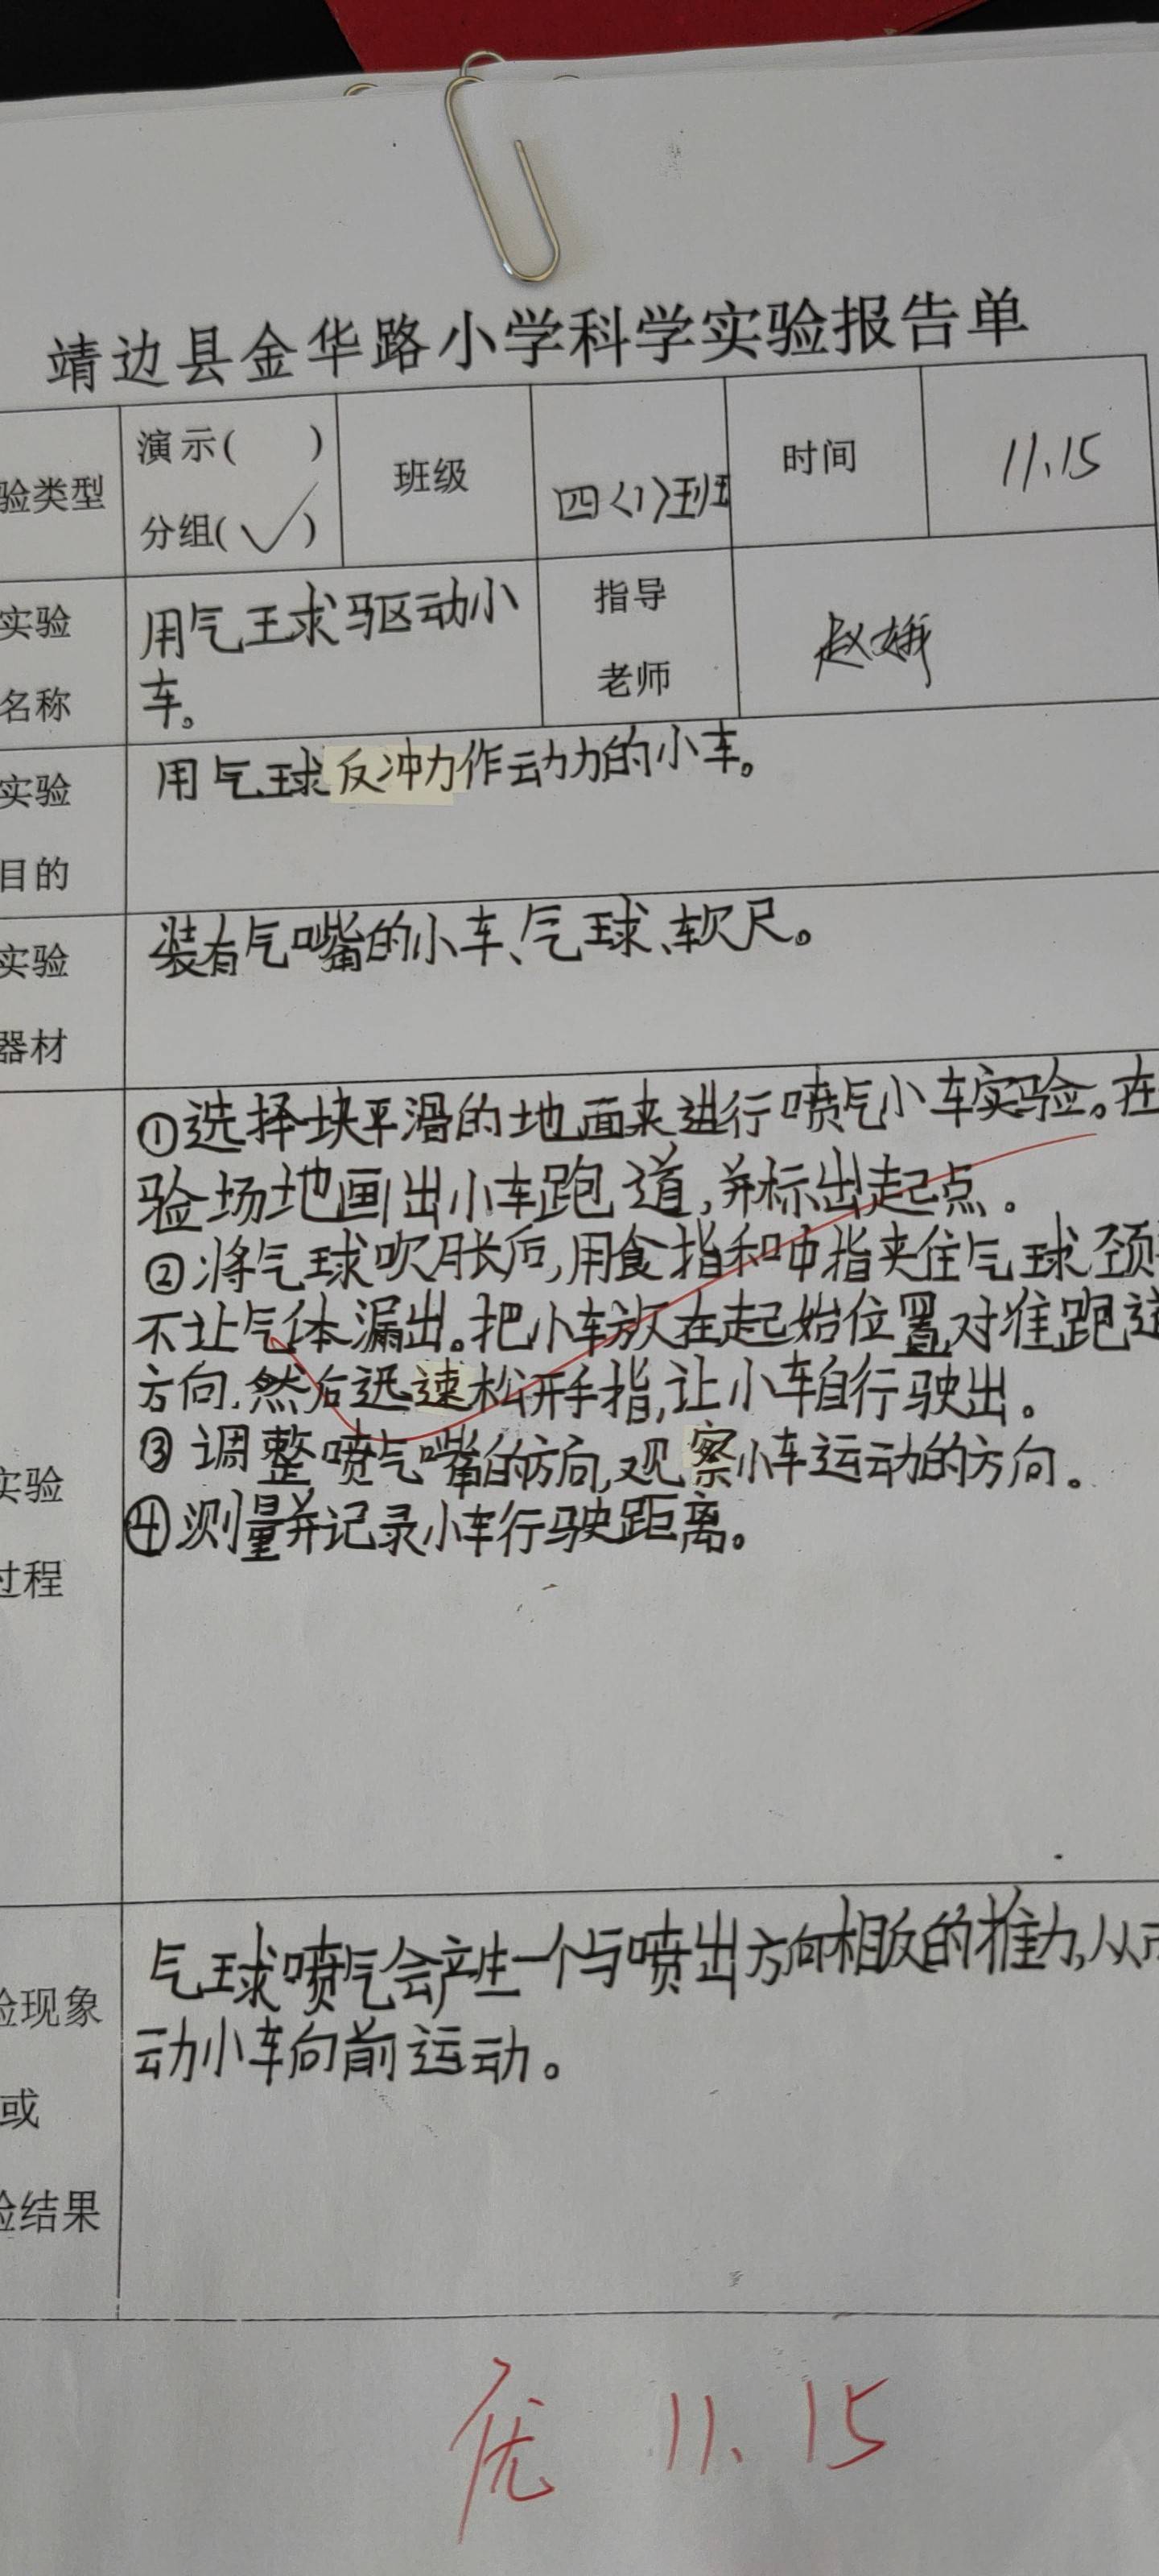 靖边县金华路小学科学实验报告单
验类型
演示( )
分组(✓)
班级
四〈1〉班
时间
11.15
实验
名称
用气球驱动小
车。
指导
老师
赵娥
实验
目的
用气球反冲力作动力的小车。
实验
器材
装有气嘴的小车、气球、软尺。
实验
过程
①选择块平滑的地面来进行喷气小车实验。在
验场地画出小车跑道,并标出起点。
②将气球吹胀后,用食指和中指夹住气球颈
不让气体漏出。把小车放在起始位置对准跑道
方向,然后迅速松开手指,让小车自行驶出。
③调整喷气嘴的方向,观察小车运动的方向。
④测量并记录小车行驶距离。
验现象
或
验结果
气球喷气会产生一个与喷出方向相反的推力,从
动小车向前运动。
优 11.15